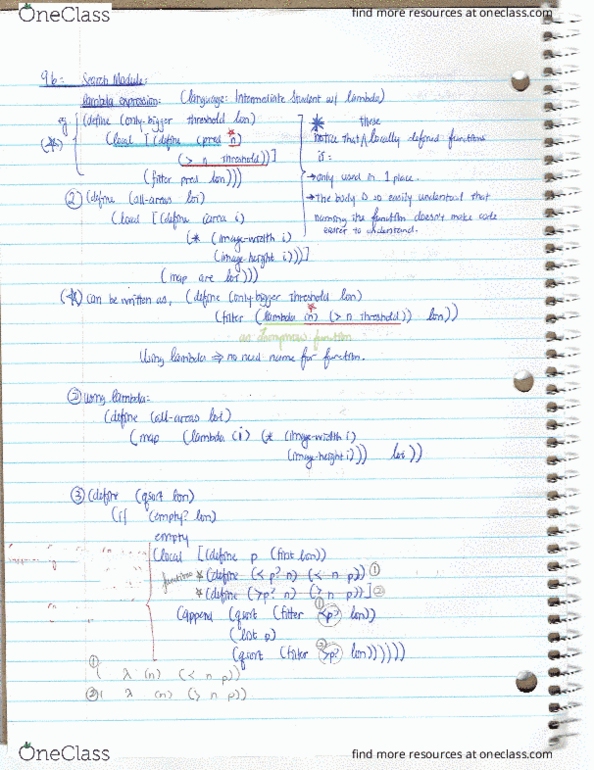 OneClass
find more resources at oneclass.com
9b: Search Module:
Lambda expression: (language: Intermediate Student w/ lambda)
eg (define (only-bigger threshold lon)
(local [(define (pred n)
(> n threshold))]
(filter pred lon)))
these
notice that locally defined functions
is:
→ only used in 1 place.
→ The body is so easily understood that
naming the function doesn't make code
easier to understand.
② (define (all-areas loi)
(local [(define (area i)
(* (image-width i)
(image-height i)))]
(map are loi)))
(*) can be written as, (define (only-bigger threshold lon)
(filter (lambda (n) (> n threshold)) lon))
function
Using lambda ⇒ no need name for function.
② using lambda:
(define (all-areas loi)
(map (lambda (i) (* (image-width i)
(image-height i))) loi))
③ (define (qsort lon)
(if (empty? lon)
empty
(local [(define p (first lon))
functions * (define (<p? n) (< n p)) ①
* (define (>p? n) (> n p))] ②
(append (qsort (filter <p? lon))
(list p)
(qsort (filter >p? lon))))))
① ( λ (n) (< n p))
② ( λ (n) (> n p))
OneClass
find more resources at oneclass.com